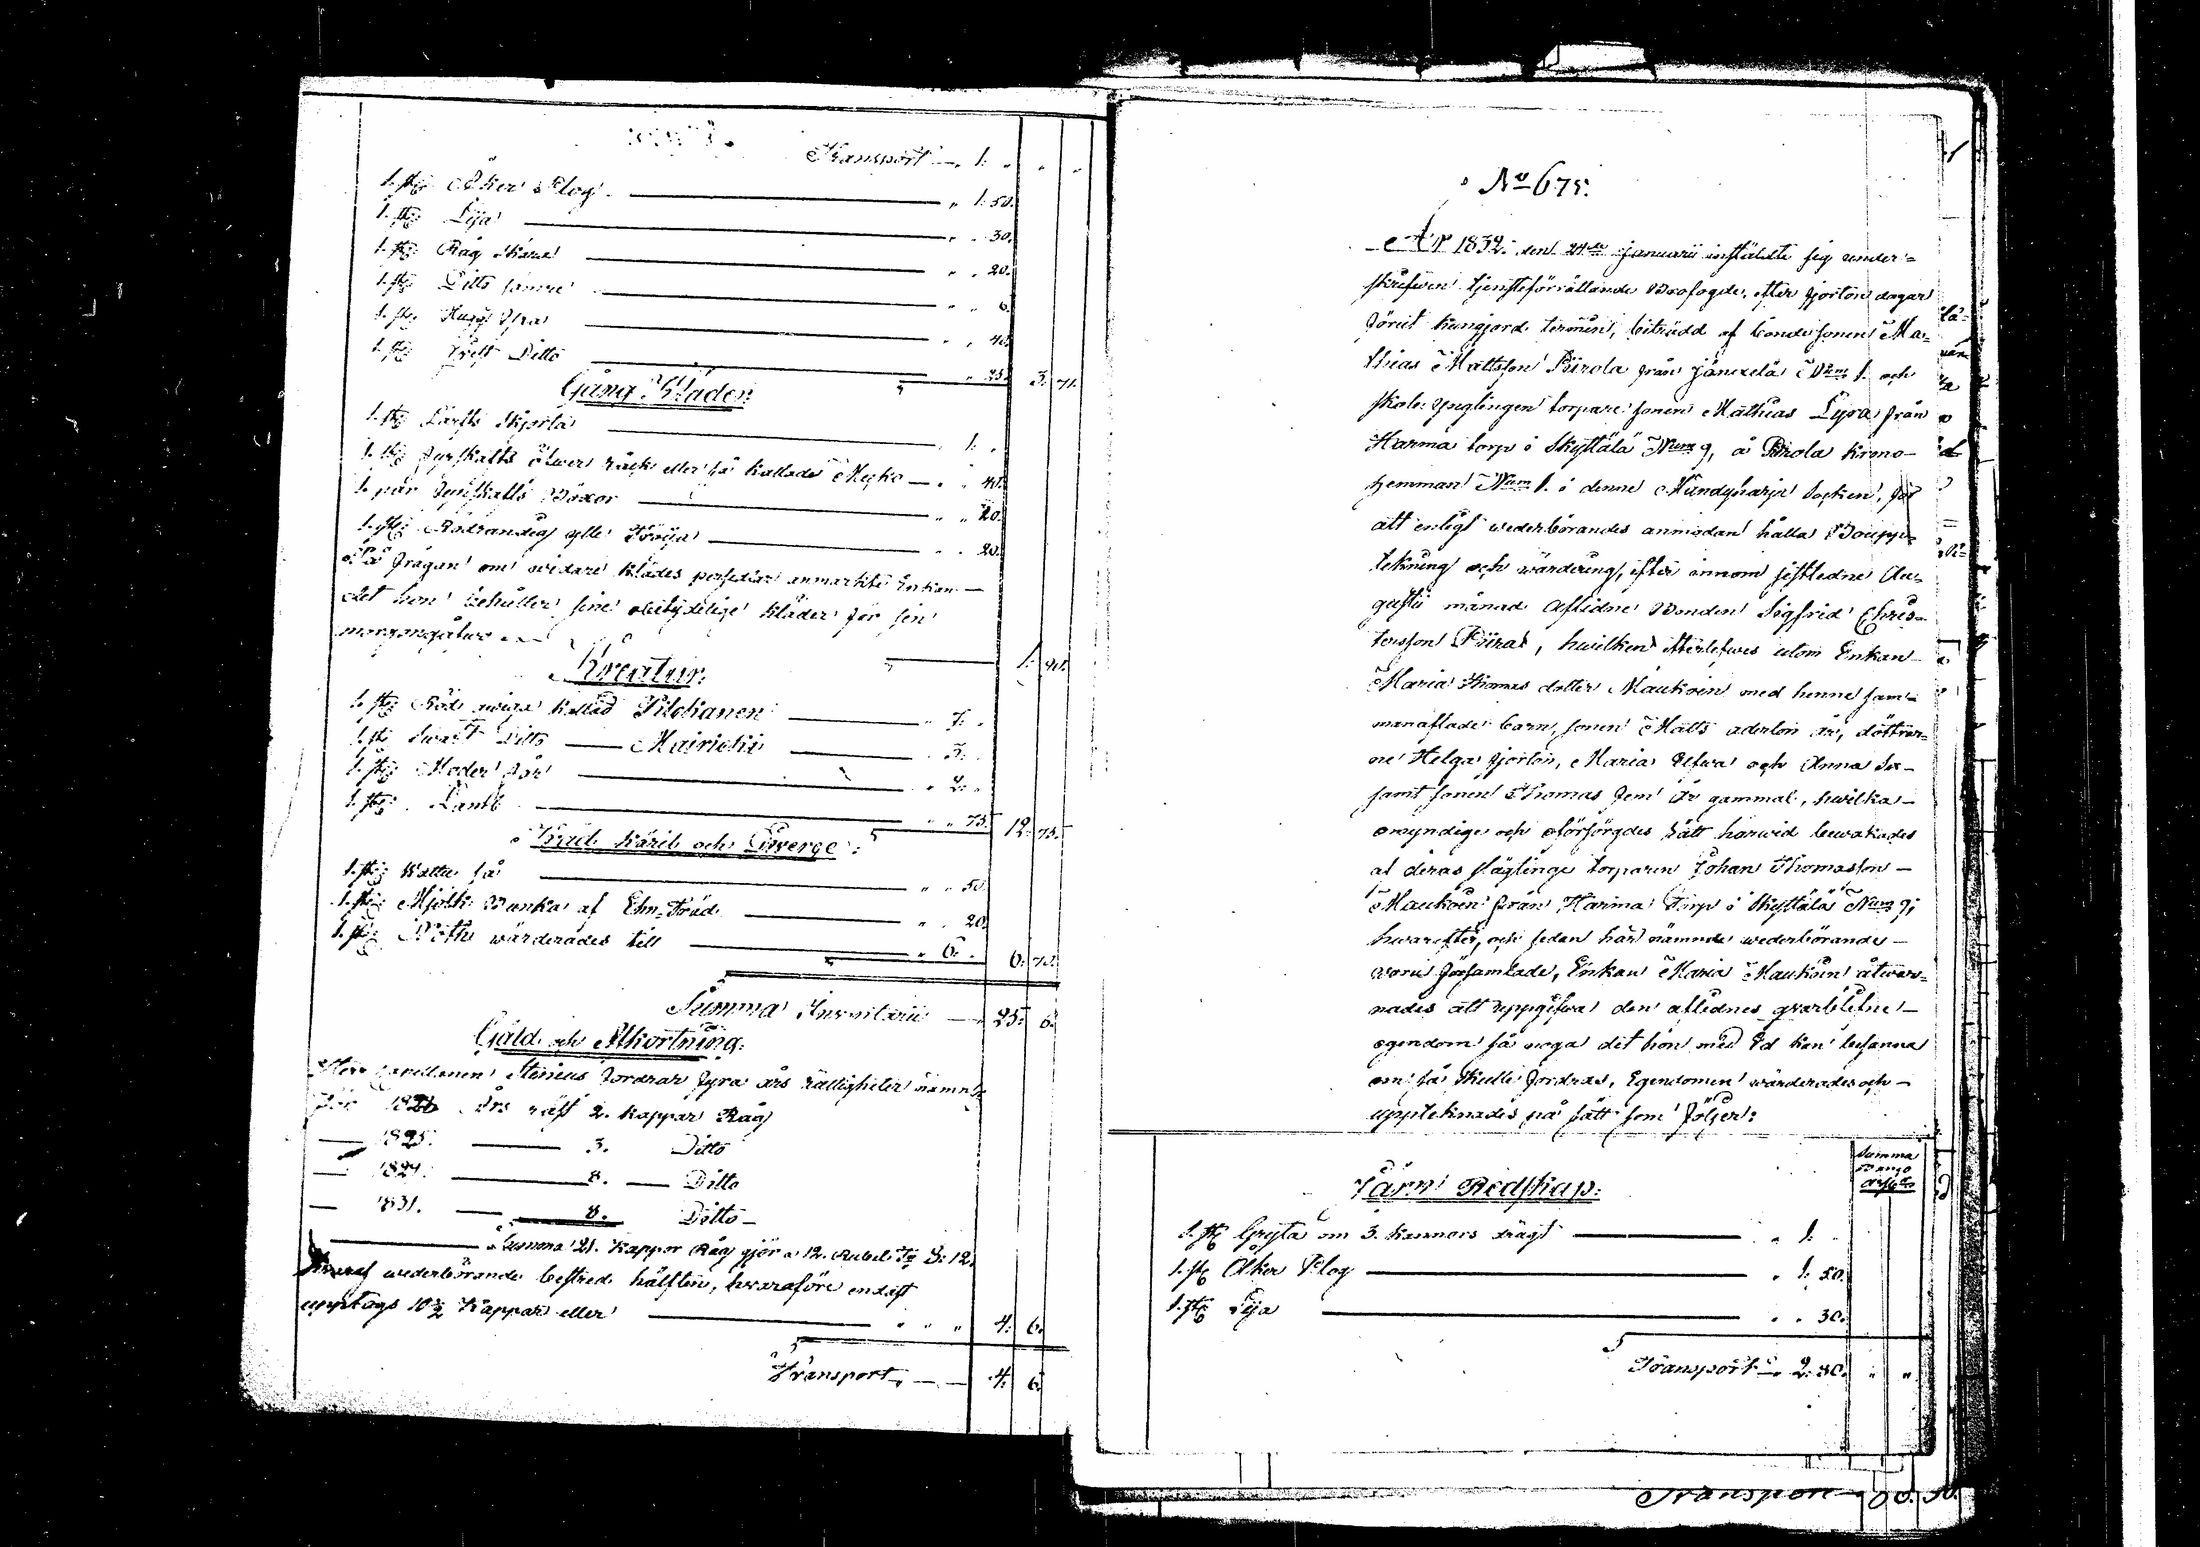 Transport — 1: „
1. st: Åker Plog — „ 1: 50.
1. st: Lija — „ „ 30.
1. st: Råg skära — „ „ 20.
1. st: Ditto sämre — „ „ 6.
1. st: Hugg Yxa — „ „ 40.
1. st: Ditto — „ 25. 3: 71.
Gång Kläder
1. st: Lärfts Skjorta — 1: „
1. st: öfwer råck eller så kallade Mekko — „ „ 40.
1. par Böxor — „ „ 20.
1. st: Rödrandig ylle Tröija — „ „ 20.
På frågan om widare klädes persedlar anmärkte Enkan —
det hon behåller sine obetydelige kläder för sin
morgongåfwa — 1: 40.
Kreatur:
1. st: Röd qwiga kallad Pilokanen — „ 7: „
1. st: Swart Ditto — Mairikki — „ 3: „
1. st: Moder får — „ 2: „
1. st: Lamb — „ „ 75. 12: 75.
Träd kärill och Diverge:
1. st: Watten så — „ „ 50.
1. st: Mjölk Bunka af Ehn-Träd — „ 20.
1. st: wärderades till — „ 6: „ 6: 70.
Summa Inventarii — 25: 6.
Gäld och Afkortning:
Herr Capellanen Stenius fordrar fyra års rättigheter nämnl:
för Års räst 2. kappar Råg
— 1825. — 3. Ditto
— — 8. — Ditto
— 1831. — 8. Ditto —
Summa 21. Kappor Råg gjör a 12. Rubel Tn 8: 12.
Hwaraf wederbörande bestrede hälften, hwaraföre endast
upptags 10½ Kappar eller — „ „ „ 4: 6.
Transport — 4: 6.
No 675.
År 1832. den 24de Januarii instälde sig under-
skrefwen tjensteförrättande Brofogde, efter fjorton dagar
förut kungjord termin, biträdd af bondesonen Ma-
thias Mattsson Piirola från Num 1. och
skole Ynglingen torpare sonen Mathias Lyra från
Harma torp i Skyttälä Num 9, å Piirola krono-
hemman Num 1. i denne socken, för
att enligt wederbörandes anmodan hålla Boupp-
tekning och wärdering, efter innom sistledne Au-
gusti månad aflidne Bonden Sigfrid Chris-
tersson , hwilken efterlefwes utom Enkan
Maria Thomas dotter Maukoin med henne sam-
manaflade barn, sonen Matts aderton år, döttrar-
ne Helga fjorton, Maria Elfwa och Anna Sex
samt sonen Thomas fem år gammal, hwilka —
omyndige och oförsörgdes rätt härwid bewakades
af deras släglinge torparen Johan Thomasson —
Maukoin från Harma Torp i Skyttälä Num 9;
hwarefter, och sedan här nämnde wederbörande —
woro församlade, Enkan Maria Maukoin åtwar-
nades att uppgifwa den aflidnes qwarblefne —
egendom så noga det hon med Ed kan besanna
om så skulle fordras, Egendomen wärderades och —
uppteknades på sätt som följer:
Summa
Banco
Järn Redskap:
1. st: Gryta om 3. kannors drägt — „ 1: „
1. st: Åker Plog — „ 1: 50.
1. st: Lija — „ „ 30.
Transport — 2: 80. „ „
Transport